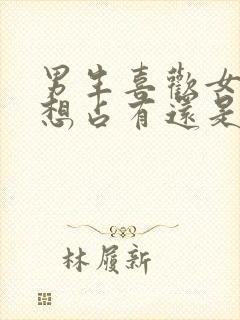 男生喜歡女
想占有還是
林履新